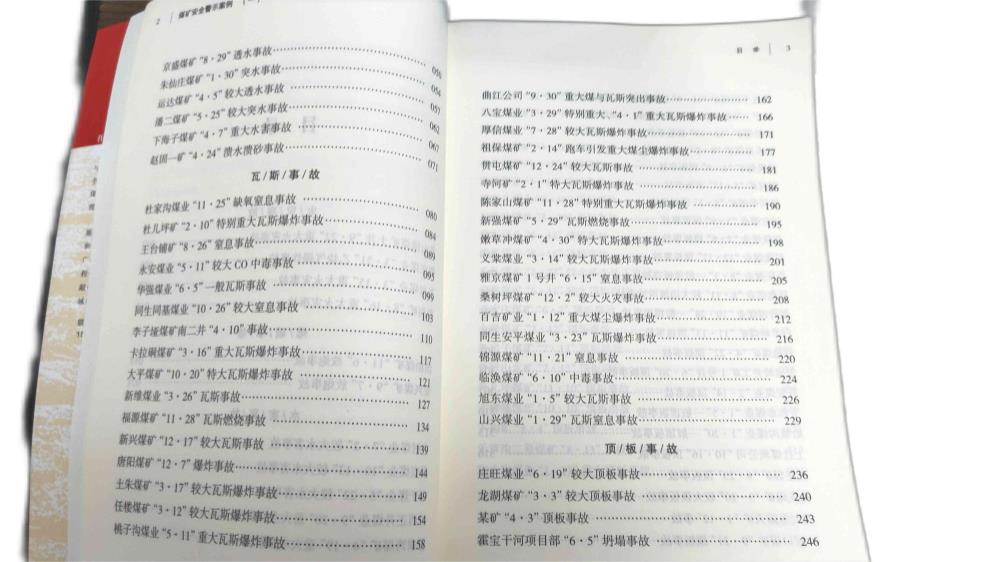 2 煤矿安全警示案例
京盛煤矿“8·29”透水事故 050
朱仙庄煤矿“1·30”突水事故 054
运达煤矿“4·5”较大透水事故 057
潘二煤矿“5·25”较大突水事故 062
下海子煤矿“4·7”重大水害事故 067
赵固一矿“4·24”溃水溃砂事故 071
瓦/斯/事/故
杜家沟煤业“11·25”缺氧窒息事故 080
杜儿坪矿“2·10”特别重大瓦斯爆炸事故 084
王台铺矿“8·26”窒息事故 089
永安煤业“5·11”较大CO中毒事故 095
华强煤业“6·5”一般瓦斯事故 099
同生同基煤业“10·26”较大窒息事故 103
李子垭煤矿南二井“4·10”事故 110
卡拉硐煤矿“3·16”重大瓦斯爆炸事故 117
大平煤矿“10·20”特大瓦斯爆炸事故 121
新维煤业“3·26”瓦斯事故 127
福源煤矿“11·28”瓦斯燃烧事故 134
新兴煤矿“12·17”较大瓦斯事故 139
唐阳煤矿“12·7”爆炸事故 144
土朱煤矿“3·17”较大瓦斯爆炸事故 149
任楼煤矿“3·12”较大瓦斯爆炸事故 154
桃子沟煤业“5·11”重大瓦斯爆炸事故 158
目 录 3
曲江公司“9·30”重大煤与瓦斯突出事故 162
八宝煤业“3·29”特别重大、“4·1”重大瓦斯爆炸事故 166
厚信煤业“7·28”较大瓦斯爆炸事故 171
祖保煤矿“2·14”跑车引发重大煤尘爆炸事故 177
贳屯煤矿“12·24”较大瓦斯事故 181
寺河矿“2·1”特大瓦斯事故 186
陈家山煤矿“11·28”特别重大事故 190
新强煤矿“5·29”瓦斯燃烧事故 195
嫩草冲煤矿“4·30”特大瓦斯事故 198
义棠煤业“3·14”较大瓦斯事故 201
雅京煤矿1号井“6·15”窒息事故 205
桑树坪煤矿“12·2”较大火灾事故 208
百吉矿业“1·12”重大煤尘事故 212
同生安平煤业“3·23”瓦斯爆炸事故 216
锦源煤矿“11·21”窒息事故 220
临涣煤矿“6·10”中毒事故 224
旭东煤业“1·5”较大瓦斯事故 226
山兴煤业“1·29”瓦斯窒息事故 229
顶/板/事/故
庄旺煤业“6·19”较大顶板事故 236
龙湖煤矿“3·3”较大顶板事故 240
某矿“4·3”顶板事故 243
霍宝干河项目部“6·5”坍塌事故 246